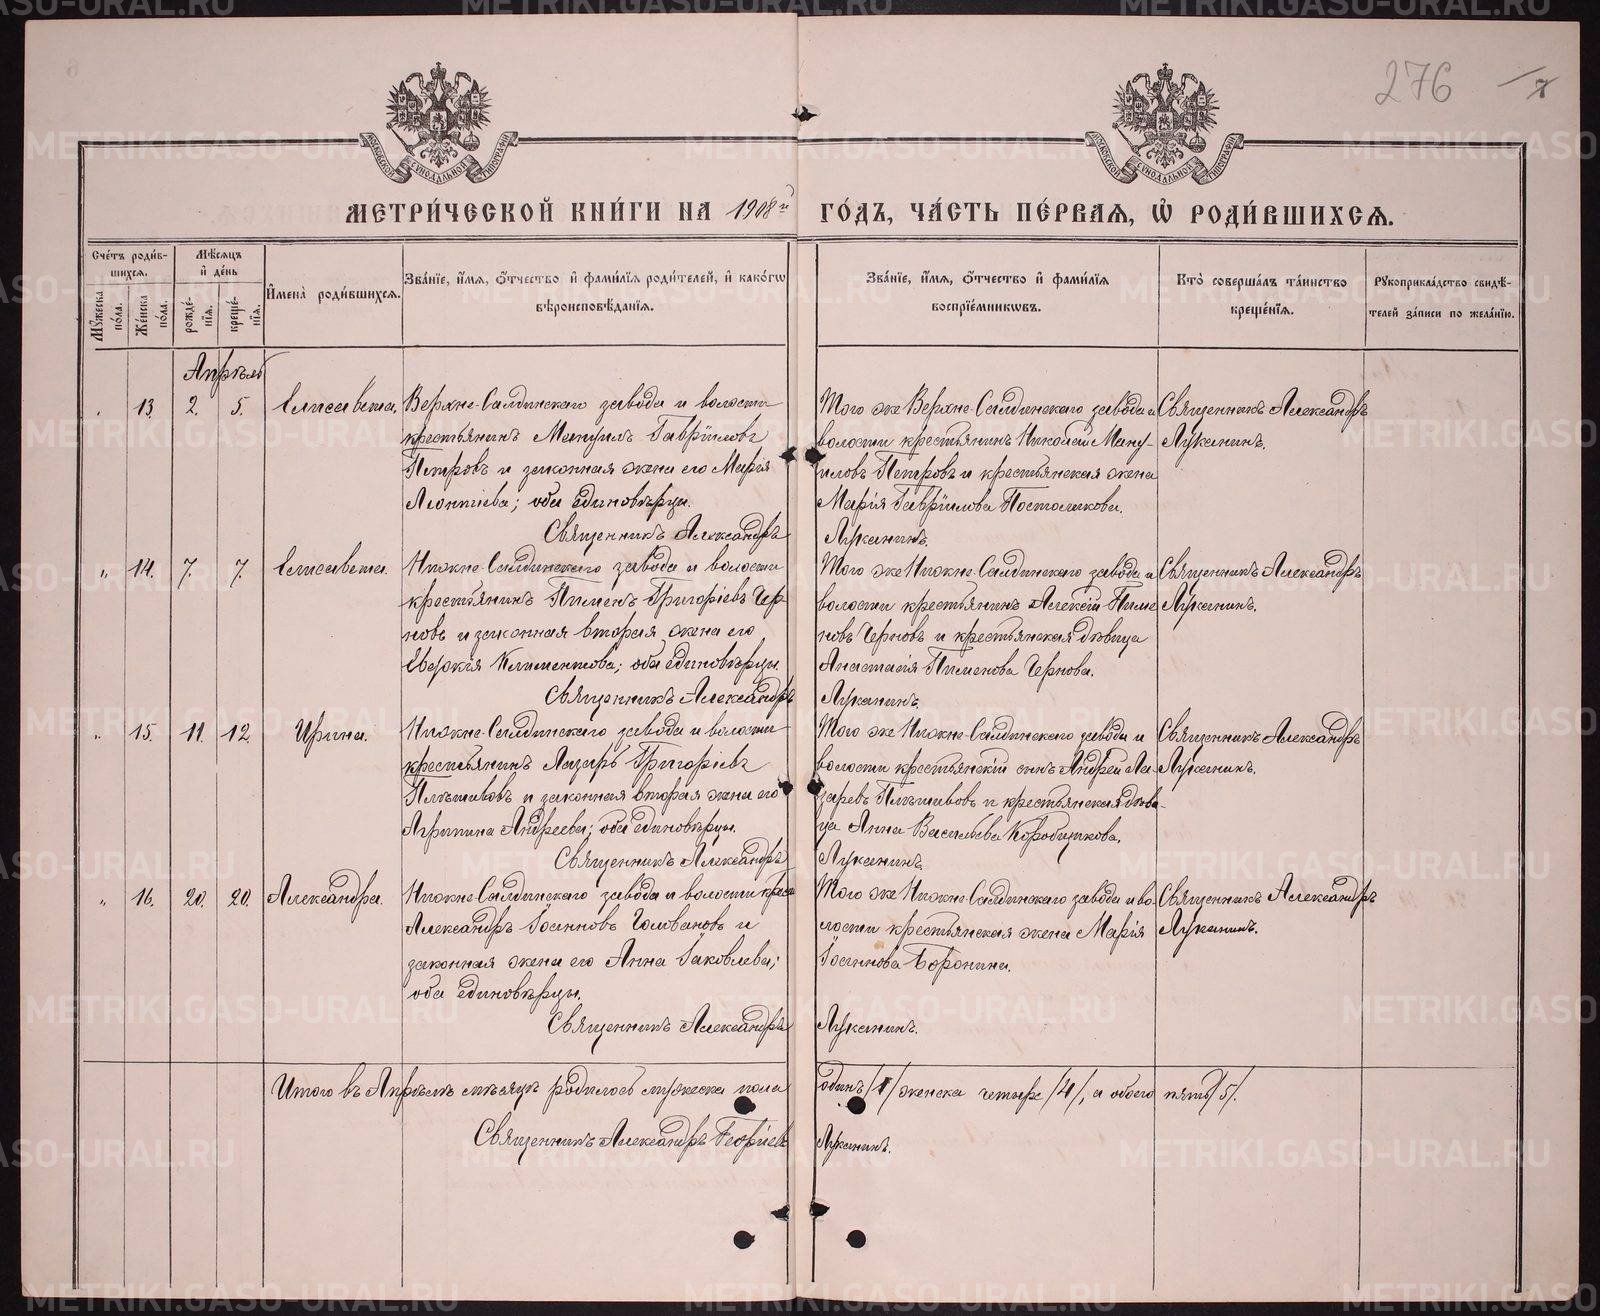 276
7
МОСКОВСКОЙ СѴНОДАЛЬНОЙ ТИПОГРАФІИ
МОСКОВСКОЙ СѴНОДАЛЬНОЙ ТИПОГРАФІИ
МЕТРИ́ЧЕСКОЙ КНИ́ГИ НА 1908й ГО́ДЪ, ЧА́СТЬ ПЕ́РВАѦ, Ѡ҆ РОДИ́ВШИХСѦ.
Сче́тъ роди́в-
шихсѧ.
Мꙋ́жеска по́ла.
Же́нска по́ла.
Мѣ́сѧцъ
и҆ де́нь
рожде́-
нїѧ.
креще́-
нїѧ.
И҆мена̀ роди́вшихсѧ.
Зва́нїе, и҆́мѧ, ѻ҆́тчество и҆ фами́лїѧ роди́телей, и҆ како́гѡ
вѣроисповѣ́данїѧ.
Зва́нїе, и҆́мѧ, ѻ҆́тчество и҆ фами́лїѧ
воспрїе́мникѡвъ.
Кто̀ соверша́лъ та́инство
креще́нїѧ.
Рꙋкоприкла́дство свидѣ́-
телей за́писи по жела́нїю.
Апрѣль
„ 13. 2. 5. Елисавета.
Верхне-Салдинскаго завода и волости
крестьянинъ Мануилъ Гавріиловъ
Петровъ и законная жена его Марія
Леонтіева; оба единовѣрцы.
Священникъ Александръ Луканинъ.
Того же Верхне-Салдинскаго завода и
волости крестьянинъ Николай Ману-
иловъ Петровъ и крестьянская жена
Марія Гавріилова Постоликова.
Священникъ Александръ
Луканинъ.
„ 14. 7. 7. Елисавета.
Нижне-Салдинскаго завода и волости
крестьянинъ Пименъ Григоріевъ Чер-
новъ и законная вторая жена его
Климентова; оба единовѣрцы.
Священникъ Александръ Луканинъ.
Того же Нижне-Салдинскаго завода и
волости крестьянинъ Алексій Пиме
новъ Черновъ и крестьянская дѣвица
Анастасія Пименова Чернова.
Священникъ Александръ
Луканинъ.
„ 15. 11. 12. Ирина.
Нижне-Салдинскаго завода и волости
крестьянинъ Лазарь Григоріевъ
Плѣшивовъ и законная вторая жена его
Агрипина Андреева; оба единовѣрцы.
Священникъ Александръ Луканинъ.
Того же Нижне-Салдинскаго завода и
волости крестьянскій сынъ Андрей Ла-
заревъ Плѣшивовъ и крестьянская дѣви-
ца Анна Васильева Коробщикова.
Священникъ Александръ
Луканинъ.
„ 16. 20. 20. Александра.
Нижне-Салдинскаго завода и волости крест.
Александръ Іоанновъ Головановъ и
законная жена его Анна Іаковлева;
оба единовѣрцы.
Священникъ Александръ Луканинъ.
Того же Нижне-Салдинскаго завода и во-
лости крестьянская жена Марія
Іоаннова Воронина.
Священникъ Александръ
Луканинъ.
Итого въ Апрѣлѣ мѣсяцѣ родилось мужеска пола одинъ /1/ женска четыре /4/, а обоего пять /5/.
Священникъ Александръ Георгіевъ Луканинъ.
METRIKI.GASO-URAL.RU